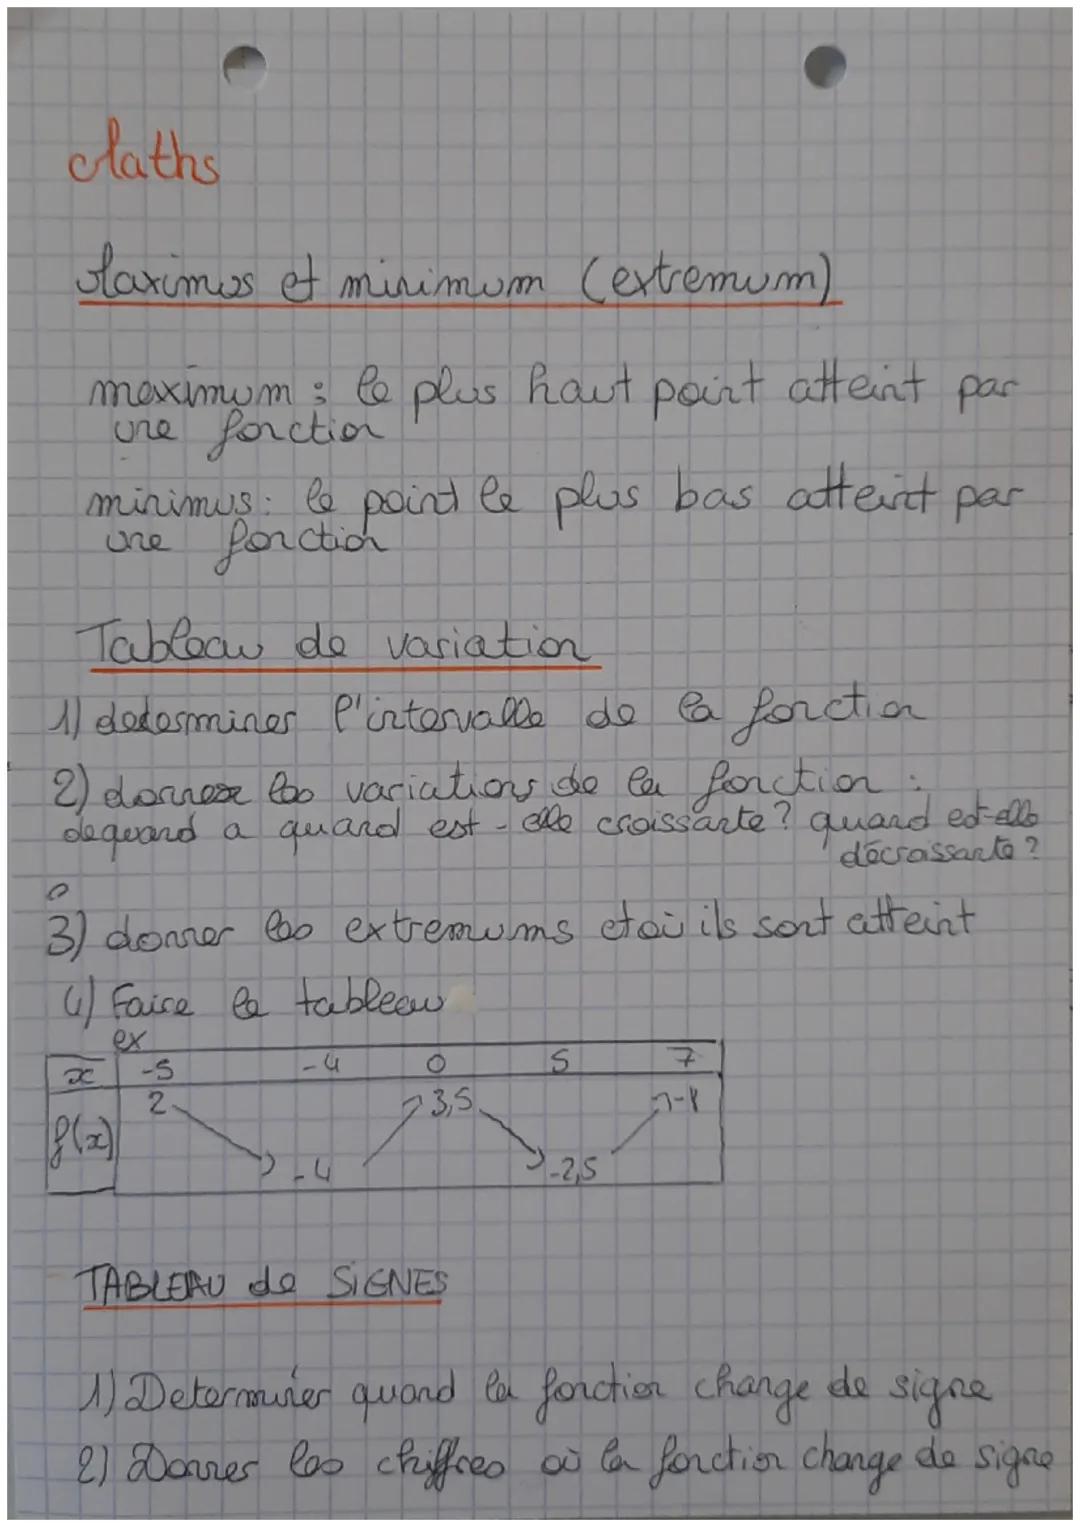 Maths
Maximus et minimum (extremum)
maximum : le plus haut point atteint par
une fonction
minimus : le point le plus bas atteint par
une fonction
Tableau de variation
1) determiner l'intervalle de la fonction
2) donner les variations de la fonction :
de quand a quand est-elle croissante ? quand est-elle
décroissante ?
3) donner les extremums et où ils sont atteint
4) Faire le tableau
ex
x -5 -4 0 5 7
2 3,5 -1
f(x)
-4 -2,5
TABLEAU de SIGNES
1) Determiner quand la fonction change de signe
2) Donner les chiffres où la fonction change de signe